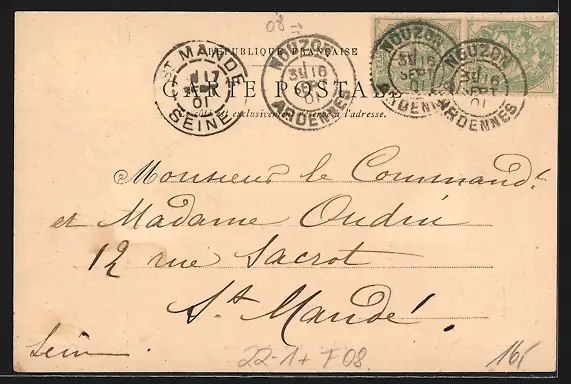 08
RÉPUBLIQUE FRANÇAISE
CARTE POSTALE
Ce côté est exclusivement réservé à l'adresse.
ST MANDÉ
17
SEPT
01
SEINE
NOUZON
3E 16
SEPT
01
ARDENNES
NOUZON
3E 16
SEPT
01
ARDENNES
NOUZON
3E 16
SEPT
01
ARDENNES
Monsieur le Commandt
et Madame Oudin
12 rue Sacrot
St Mandé!
Seine
22-1+ F08